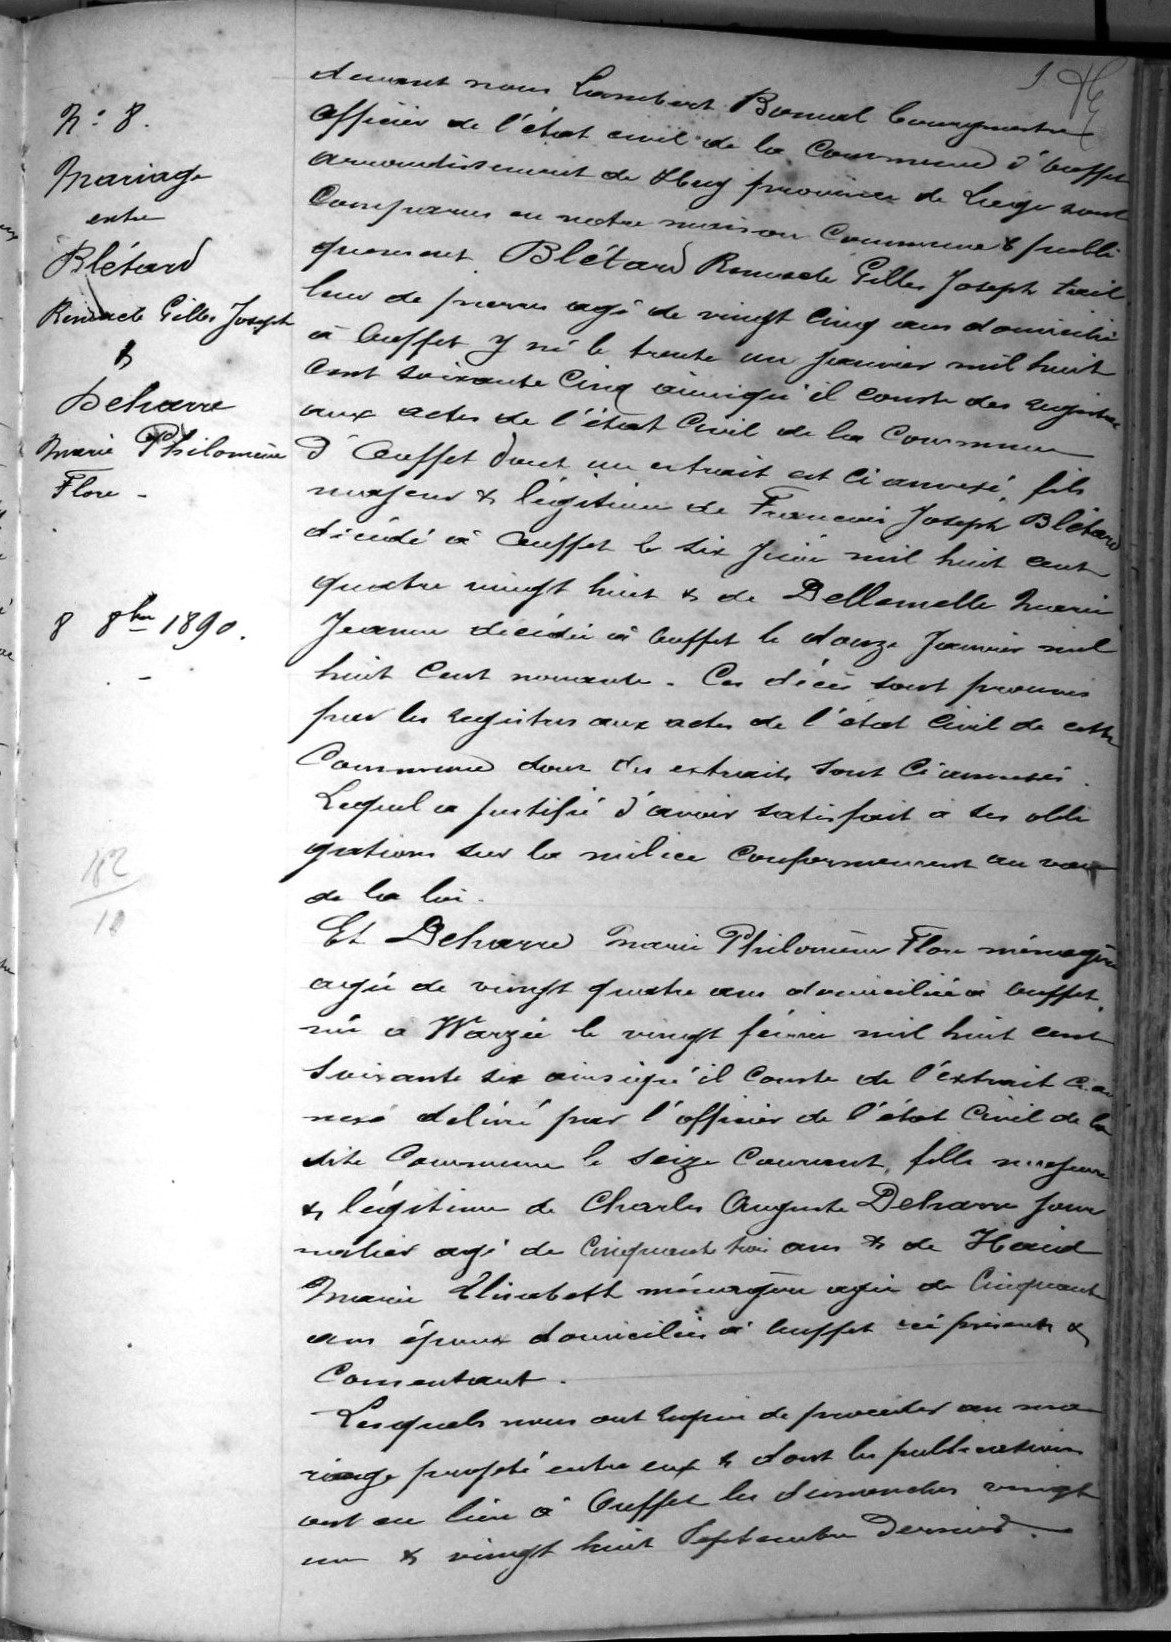 N: 8.
Mariage
entre
Blétard
Remacle Gilles Joseph
&
Deharre
Marie Philomène
Flore -
8 8bre 1890.
182
10
devant nous Lambert Bonmal bourgmestre
officier de l'état civil de la commune d'Ouffet
arrondissement de Huy province de Liège sont
comparus en notre maison commune & publi
quement Blétard Remacle Gilles Joseph tail
leur de pierres agé de vingt cinq ans domicilié
à Ouffet y né le trente un janvier mil huit
cent soixante cinq ainsiqu'il conste des registres
aux actes de l'état civil de la commune
d'Ouffet dont un extrait est ci annexé, fils
majeur & légitime de Francois Joseph Blétard
décédé à Ouffet le six juin mil huit cent
quatre vingt huit & de Dellemelle Marie
Jeanne décédée à Ouffet le douze Janvier mil
huit cent nonante. Ces décès sont prouvés
par les registres aux actes de l'état civil de cette
Commune dont des extraits sont ci annexés.
Lequel a justifié d'avoir satisfait à ses obli
gations sur la milice conformement au vœu
de la loi.
Et Deharre Marie Philomène Flore ménagère
agée de vingt quatre ans domiciliée à Ouffet,
née à Warzée le vingt février mil huit cent
soixante six ainsiqu'il conste de l'extrait ci an
nexé délivré par l'officier de l'état civil de la
dite Commune le seize courant, fille majeure
& légitime de Charles Auguste Deharre jour
nalier agé de cinquante trois ans & de Haid
Marie Elisabeth ménagère agée de cinquante
ans époux domiciliés à Ouffet ici présents &
consentant.
Lesquels nous ont requis de proceder au ma
riage projeté entre eux & dont les publications
ont eu lieu à Ouffet les dimanches vingt
un & vingt huit Septembre dernier.